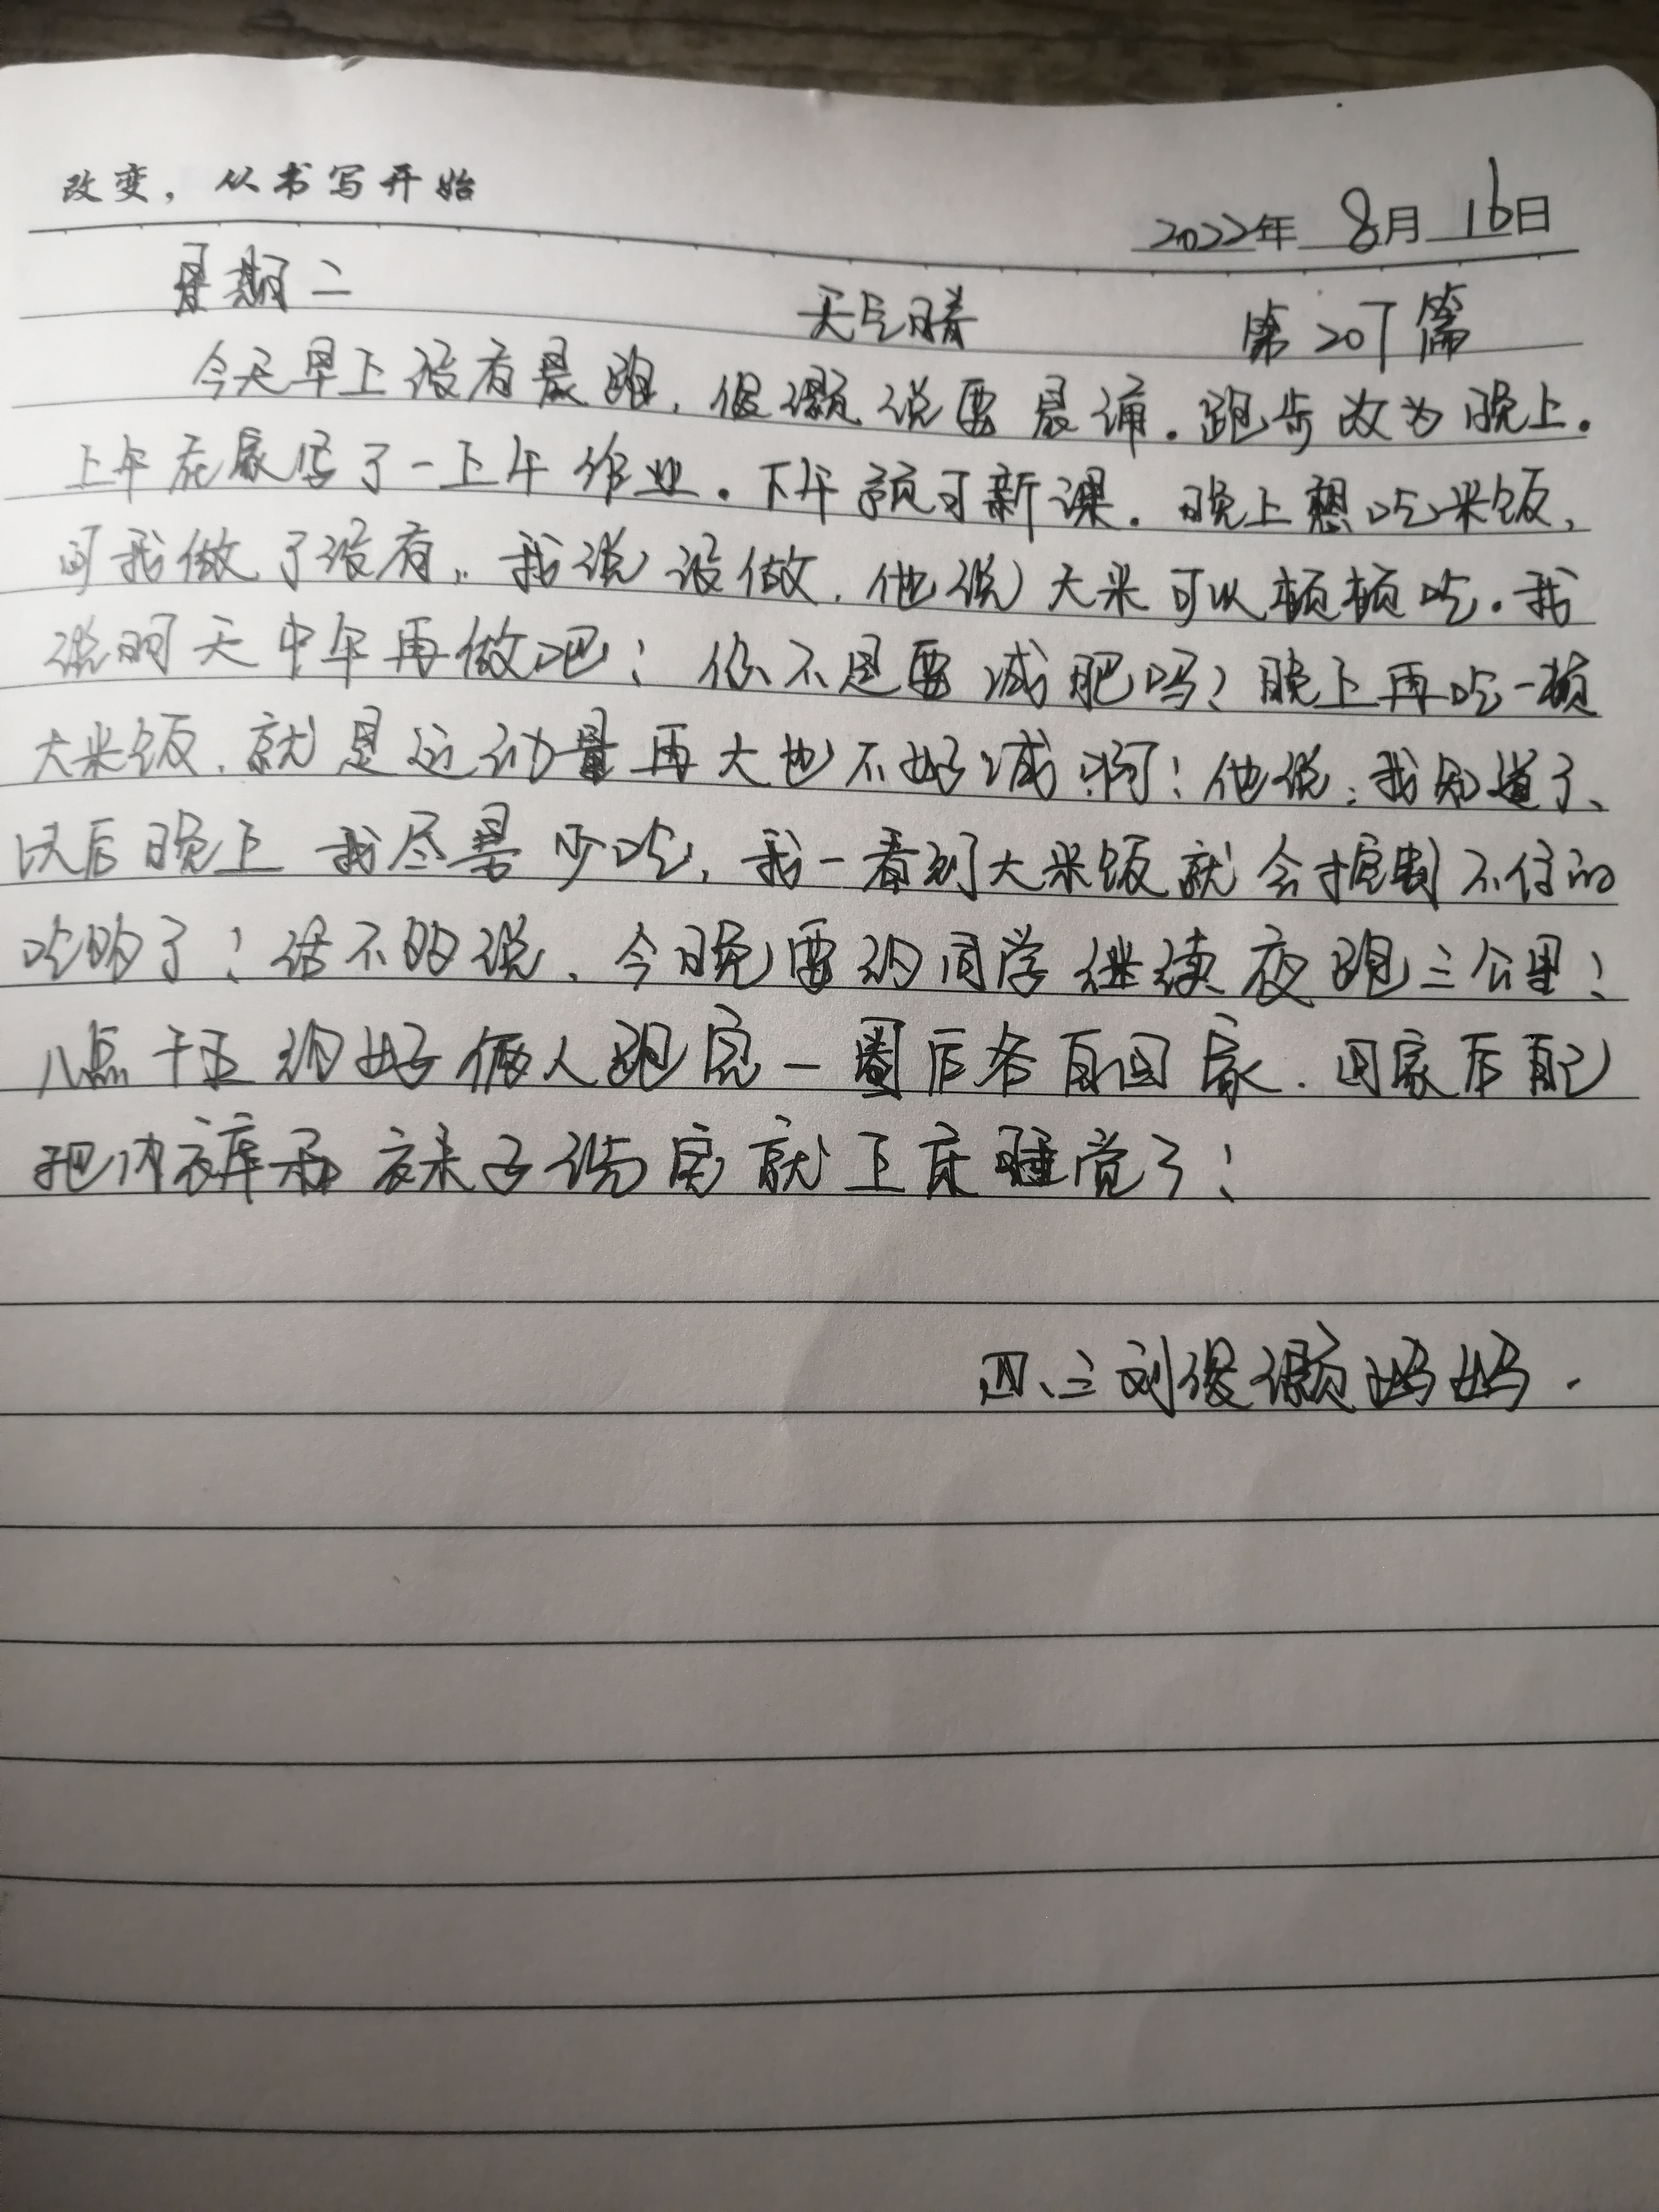 改变，从书写开始
2022年 8月 16日
星期二 天气晴 第207篇
今天早上没有晨跑，俊灏说要晨诵。跑步改为晚上。
上午在家写了一上午作业。下午预习新课。晚上想吃米饭，
问我做了没有。我说没做，他说大米可以顿顿吃。我
说明天中午再做吧！你不是要减肥吗？晚上再吃一顿
大米饭，就是运动量再大也不好减啊！他说：我知道了、
以后晚上我尽量少吃，我一看到大米饭就会控制不住的
吃的了！话不的说，今晚要约同学继续夜跑三公里！
八点十五约好俩人跑完一圈后各自回家．回家后自己
把内裤和袜子洗完就上床睡觉了！
四、三刘俊灏妈妈．